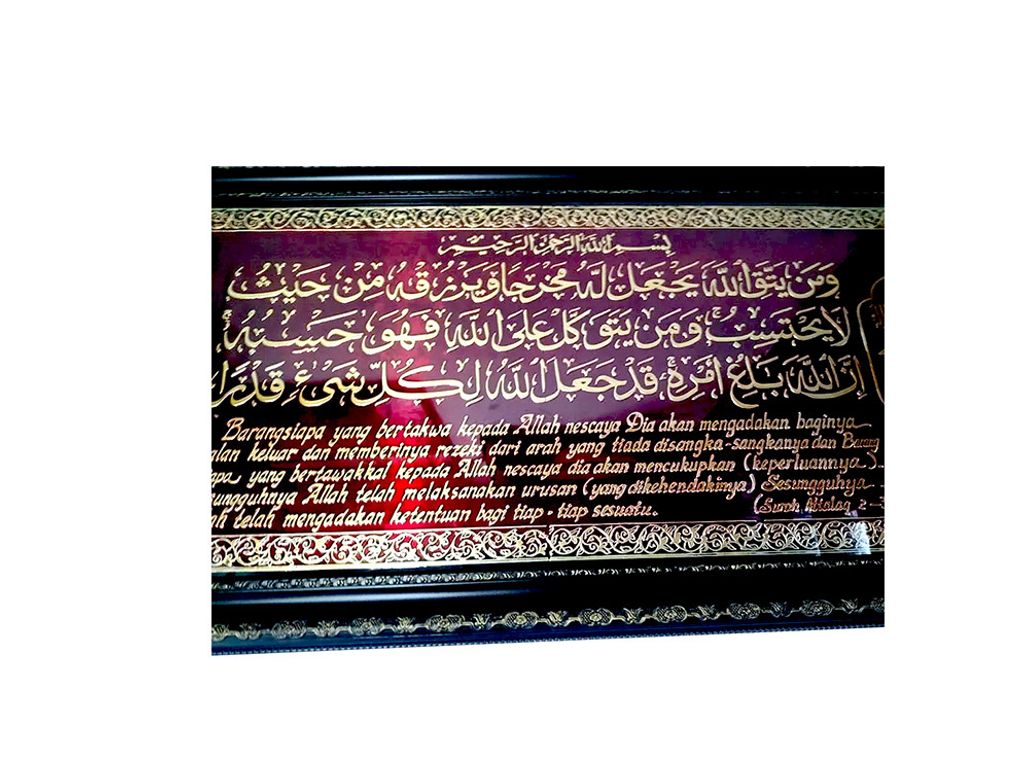 بِسْمِ اللهِ الرَّحْمٰنِ الرَّحِيْمِ
وَمَن يَتَّقِ اللَّهَ يَجْعَل لَّهُ مَخْرَجًا وَيَرْزُقْهُ مِنْ حَيْثُ
لَا يَحْتَسِبُ وَمَن يَتَوَكَّلْ عَلَى اللَّهِ فَهُوَ حَسْبُهُ
إِنَّ اللَّهَ بَالِغُ أَمْرِهِ قَدْ جَعَلَ اللَّهُ لِكُلِّ شَيْءٍ قَدْرًا
Barangsiapa yang bertakwa kepada Allah nescaya Dia akan mengadakan baginya
alan keluar dan memberinya rezeki dari arah yang tiada disangka-sangkanya dan Barang
apa yang bertawakkal kepada Allah nescaya dia akan mencukupkan (keperluannya).
ungguhnya Allah telah melaksanakan urusan (yang dikehendakinya) Sesungguhya
ah telah mengadakan ketentuan bagi tiap-tiap sesuatu. (Surah Attalaq 2-3